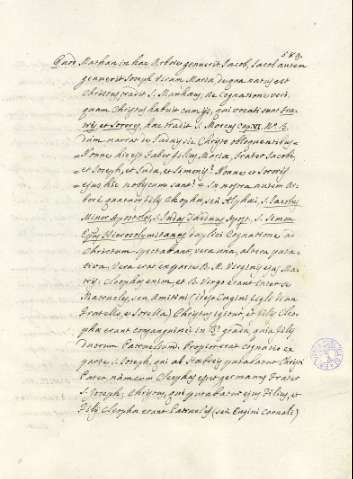 583.
Quare Mathan in hac Arbore genuerit Jacob, Jacob autem
genuerit Joseph virum Mariæ de qua natus est
Christus, tradit S. Matthæus, De Cognatione vero,
quam Christus habuit cum ijs, qui vocati sunt Fra-
tres, et Sorores, hæc tradit S. Marcus Cap. VI. N. 3.
dum narrat de Judæis de Christo obloquentibus
Nonne hic est Faber filius Mariæ, Frater Jacobi,
et Joseph, et Judæ, et Simonis? Nonne et Sorores
ejus hic nobiscum sunt? In nostra autem Ar-
bore quatuor filij Cleophæ, seu Alphæi, S. Jacobus
Minor Apostolus, S. Judas Thadæus Apost. S. Simon
Epus Hierosolymitanus duplici Cognatione ad
Christum spectabant, vera una, altera puta-
tiva. Vera erat ex parte B. M. Virginis ejus Ma-
tris; Cleophas enim, et B. Virgo erant inter se
Patrueles, seu Amitini (idest Cugini figli d'un
Fratello, e Sorella) Christus igitur, et filij Cleo-
phæ erant consanguinei in 3.º gradu, quia filij
duorum Patruelium. Propterea et cognatio ex
parte S. Joseph, qui ab Hæbreis putabatur Christi
Pater, nam cum Cleophas esset germanus Frater
S. Joseph, Christus, qui putabatur ejus Filius, et
Filij Cleophæ erant Patrueles (seu Cugini Carnali)